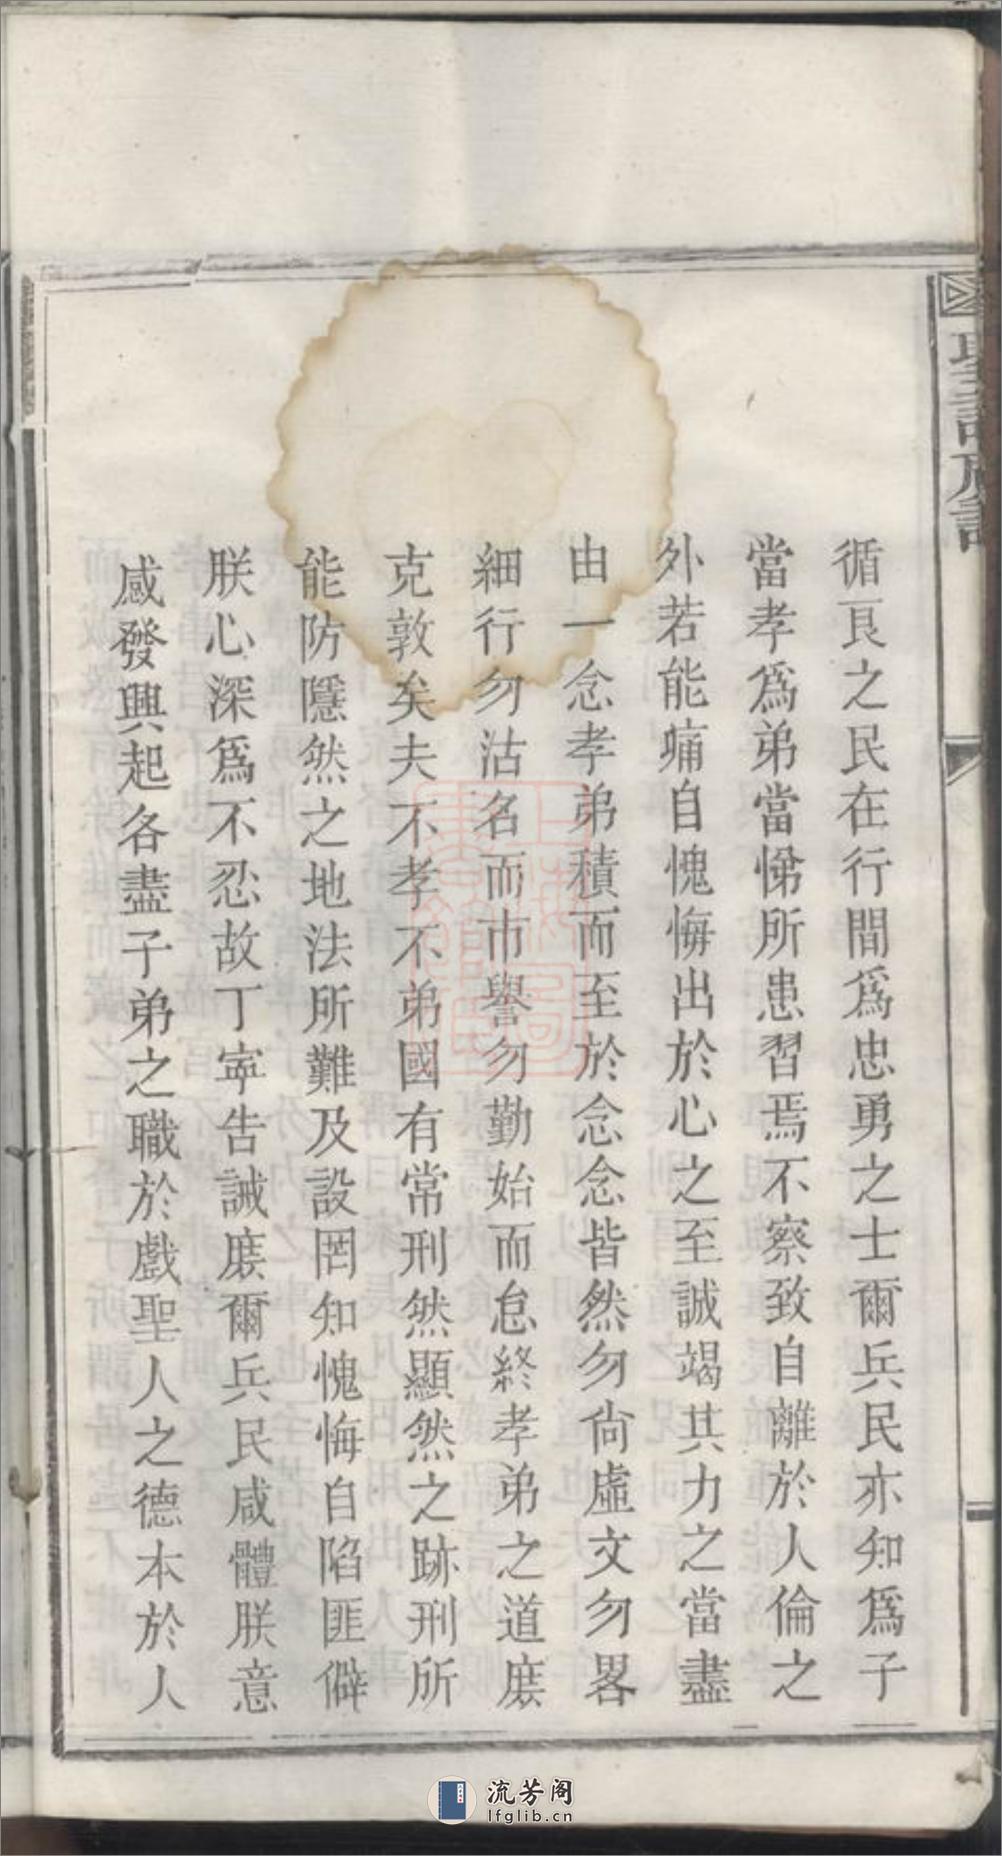 循良之民在行間爲忠勇之士爾兵民亦知爲子
當孝爲弟當悌所患習焉不察致自離於人倫之
外若能痛自愧悔出於心之至誠竭其力之當盡
由一念孝弟積而至於念念皆然勿尚虛文勿畧
細行勿沽名而市譽勿勤始而怠終孝弟之道庶
克敦矣夫不孝不弟國有常刑然顯然之跡刑所
能防隱然之地法所難及設罔知愧悔自陷匪僻
朕心深爲不忍故丁寧告誡庶爾兵民咸體朕意
感發興起各盡子弟之職於戲聖人之德本於人
流芳阁
lfglib.cn